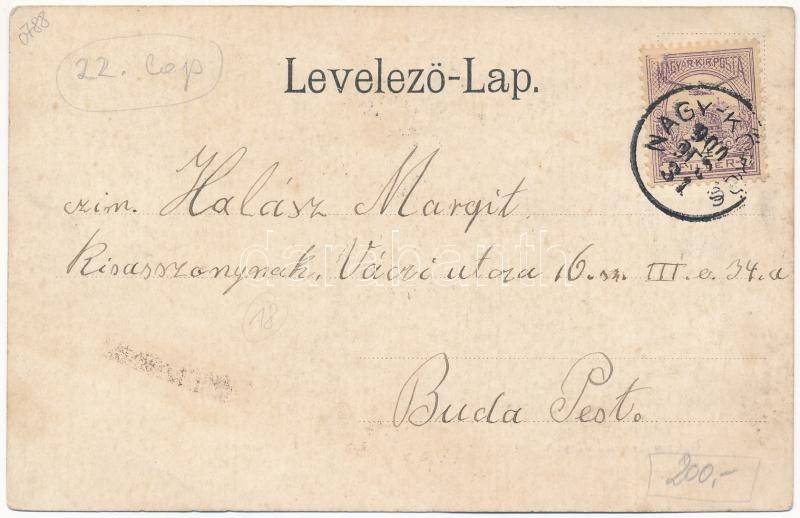 0788
22. lap
Levelező-Lap.
MAGYAR KIR. POSTA
FILLÉR
NAGY-KŐRÖS
czím. Halász Margit
kisasszonynak, Váczi utcza 16. sz. III. e. 34. a
darabanth.com
18
Buda Pest.
200,-